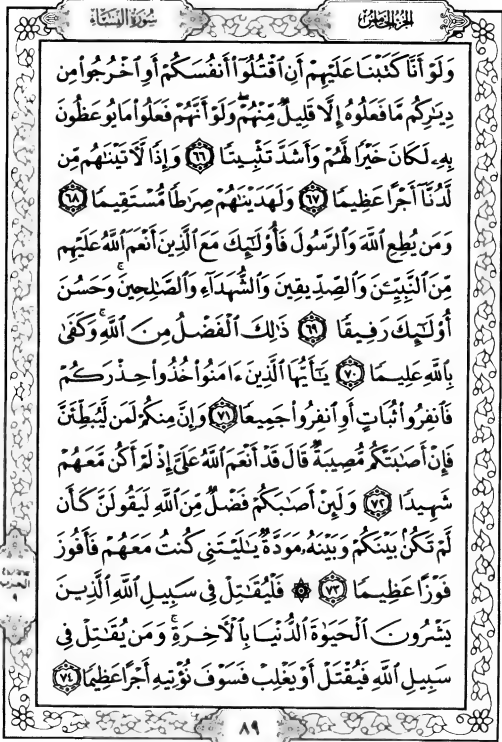 سُورَةُ النِّسَاءِ
الجُزءُ الخَامِسُ
وَلَوْ أَنَّا كَتَبْنَا عَلَيْهِمْ أَنِ ٱقْتُلُوٓا۟ أَنفُسَكُمْ أَوِ ٱخْرُجُوا۟ مِن
دِيَـٰرِكُم مَّا فَعَلُوهُ إِلَّا قَلِيلٌ مِّنْهُمْ ۖ وَلَوْ أَنَّهُمْ فَعَلُوا۟ مَا يُوعَظُونَ
بِهِۦ لَكَانَ خَيْرًا لَّهُمْ وَأَشَدَّ تَثْبِيتًا ٦٦ وَإِذًا لَّـَٔاتَيْنَـٰهُم مِّن
لَّدُنَّآ أَجْرًا عَظِيمًا ٦٧ وَلَهَدَيْنَـٰهُمْ صِرَٰطًا مُّسْتَقِيمًا ٦٨
وَمَن يُطِعِ ٱللَّهَ وَٱلرَّسُولَ فَأُو۟لَـٰٓئِكَ مَعَ ٱلَّذِينَ أَنْعَمَ ٱللَّهُ عَلَيْهِم
مِّنَ ٱلنَّبِيِّـۧنَ وَٱلصِّدِّيقِينَ وَٱلشُّهَدَآءِ وَٱلصَّـٰلِحِينَ ۚ وَحَسُنَ
أُو۟لَـٰٓئِكَ رَفِيقًا ٦٩ ذَٰلِكَ ٱلْفَضْلُ مِنَ ٱللَّهِ ۚ وَكَفَىٰ
بِٱللَّهِ عَلِيمًا ٧٠ يَـٰٓأَيُّهَا ٱلَّذِينَ ءَامَنُوا۟ خُذُوا۟ حِذْرَكُمْ
فَٱنفِرُوا۟ ثُبَاتٍ أَوِ ٱنفِرُوا۟ جَمِيعًا ٧١ وَإِنَّ مِنكُمْ لَمَن لَّيُبَطِّئَنَّ
فَإِنْ أَصَـٰبَتْكُم مُّصِيبَةٌ قَالَ قَدْ أَنْعَمَ ٱللَّهُ عَلَىَّ إِذْ لَمْ أَكُن مَّعَهُمْ
شَهِيدًا ٧٢ وَلَئِنْ أَصَـٰبَكُمْ فَضْلٌ مِّنَ ٱللَّهِ لَيَقُولَنَّ كَأَن
لَّمْ تَكُنۢ بَيْنَكُمْ وَبَيْنَهُۥ مَوَدَّةٌ يَـٰلَيْتَنِى كُنتُ مَعَهُمْ فَأَفُوزَ
فَوْزًا عَظِيمًا ٧٣ ۞ فَلْيُقَـٰتِلْ فِى سَبِيلِ ٱللَّهِ ٱلَّذِينَ
يَشْرُونَ ٱلْحَيَوٰةَ ٱلدُّنْيَا بِٱلْـَٔاخِرَةِ ۚ وَمَن يُقَـٰتِلْ فِى
سَبِيلِ ٱللَّهِ فَيُقْتَلْ أَوْ يَغْلِبْ فَسَوْفَ نُؤْتِيهِ أَجْرًا عَظِيمًا ٧٤
الحزب
٩
٨٩